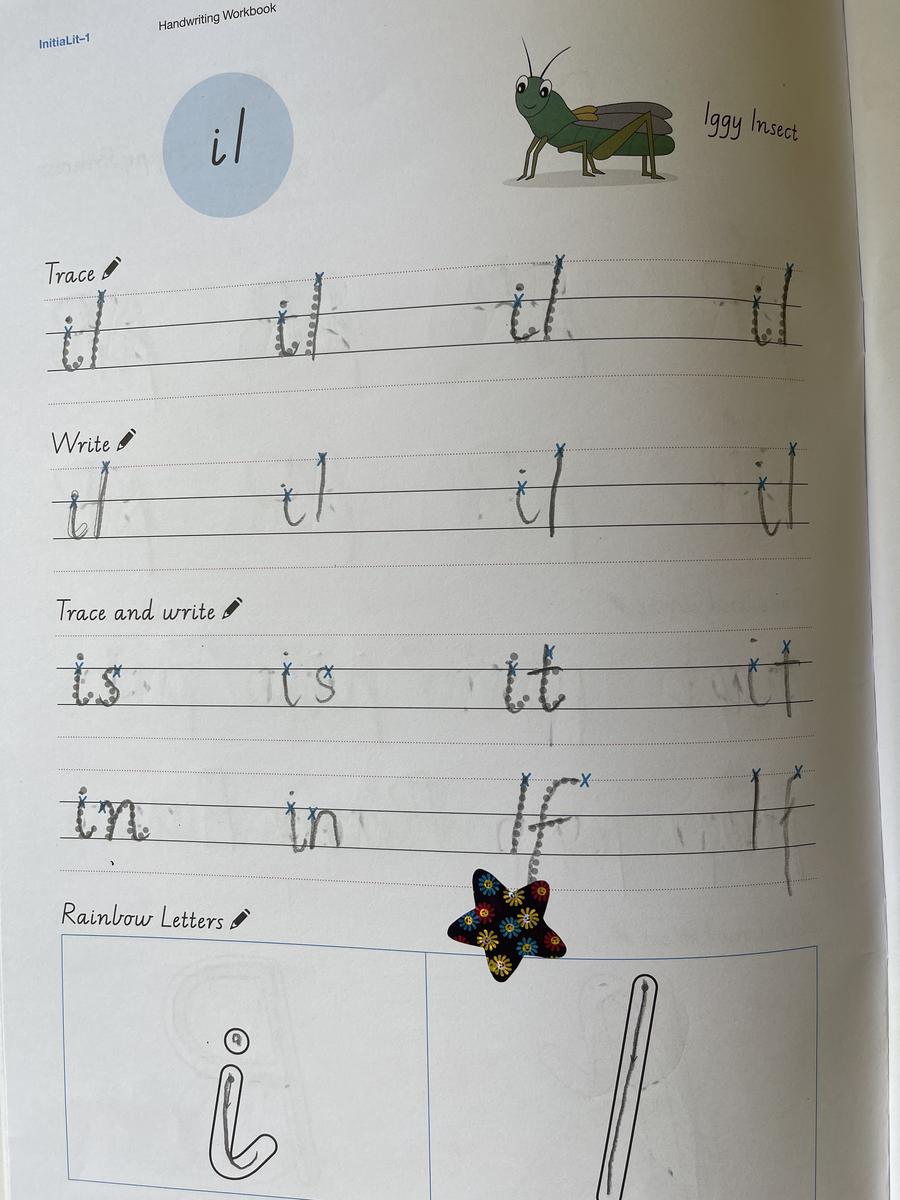 InitiaLit–1 Handwriting Workbook
iI
Iggy Insect
Trace
iI iI iI iI
Write
iI iI iI iI
Trace and write
is is it it
in in If If
Rainbow Letters
i I